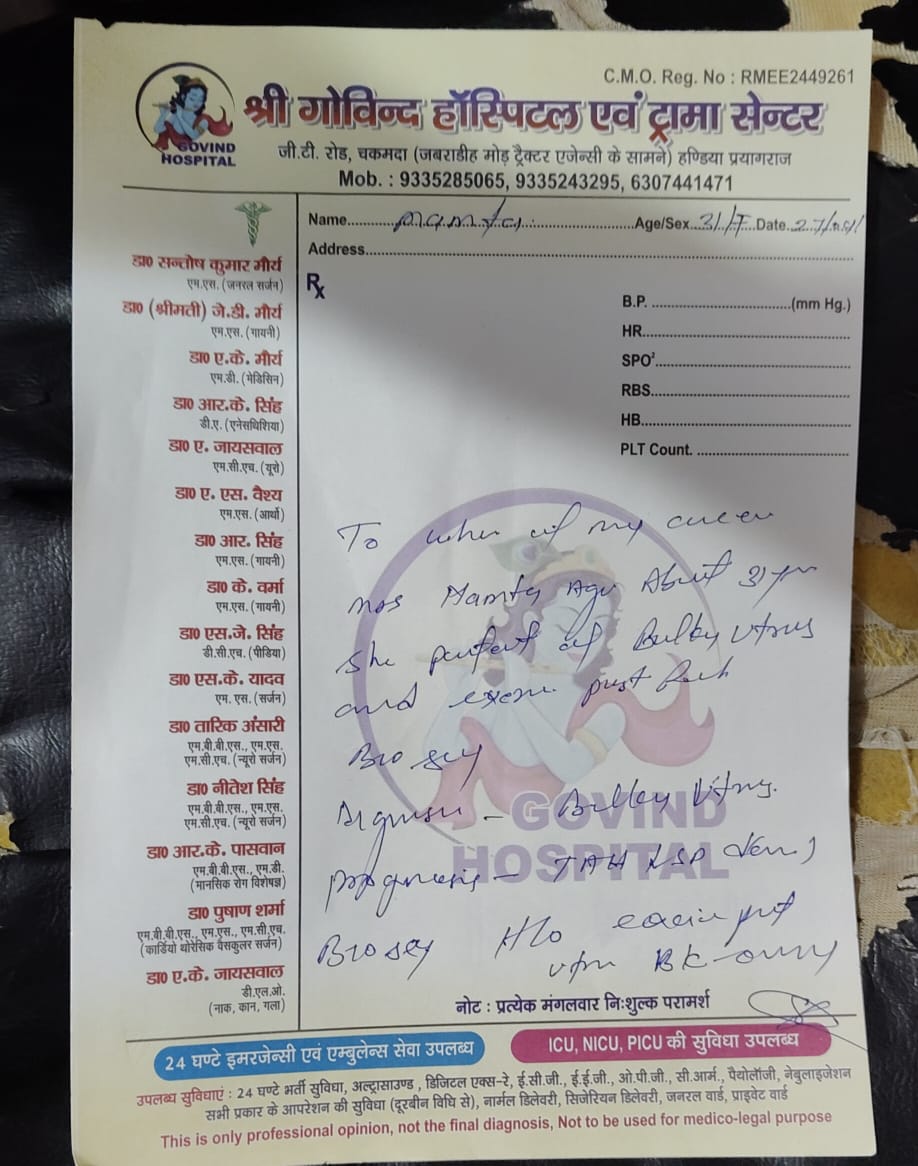 C.M.O. Reg. No : RMEE2449261
श्री गोविन्द हॉस्पिटल एवं ट्रामा सेन्टर
GOVIND
HOSPITAL
जी.टी. रोड, चकमदा (जबराडीह मोड़ ट्रैक्टर एजेन्सी के सामने) हण्डिया प्रयागराज
Mob. : 9335285065, 9335243295, 6307441471
Name..........mamta..........Age/Sex..31/F..Date..27/
Address..........
Rx
B.P. ..........(mm Hg.)
HR..........
SPO²..........
RBS..........
HB..........
PLT Count. ..........
डा० सन्तोष कुमार मौर्य
एम.एस. (जनरल सर्जन)
डा० (श्रीमती) जे.डी. मौर्य
एम.एस. (गायनी)
डा० ए.के. मौर्य
एम.डी. (मेडिसिन)
डा० आर.के. सिंह
डी.ए. (एनेसथिशिया)
डा० ए. जायसवाल
एम.सी.एच. (यूरो)
डा० ए. एस. वैश्य
एम.एस. (आर्थो)
डा० आर. सिंह
एम.एस. (गायनी)
डा० के. वर्मा
एम.एस. (गायनी)
डा० एस.जे. सिंह
डी.सी.एच. (पीडिया)
डा० एस.के. यादव
एम. एस. (सर्जन)
डा० तारिक अंसारी
एम.बी.बी.एस., एम.एस.
एम.सी.एच. (न्यूरो सर्जन)
डा० नीतेश सिंह
एम.बी.बी.एस., एम.एस.
एम.सी.एच. (न्यूरो सर्जन)
डा० आर.के. पासवान
एम.बी.बी.एस., एम.डी.
(मानसिक रोग विशेषज्ञ)
डा० पुषाण शर्मा
एम.बी.बी.एस., एम.एस., एम.सी.एच.
(कार्डियो थोरेसिक वैसकुलर सर्जन)
डा० ए.के. जायसवाल
डी.एल.ओ.
(नाक, कान, गला)
To my
Mrs Mamta Age About 31 yrs
She of Bulky Utrus
and
Bulky Utrus.
TAH
H/o
GOVIND
HOSPITAL
नोट : प्रत्येक मंगलवार निःशुल्क परामर्श
24 घण्टे इमरजेन्सी एवं एम्बुलेन्स सेवा उपलब्ध
ICU, NICU, PICU की सुविधा उपलब्ध
उपलब्ध सुविधाएं : 24 घण्टे भर्ती सुविधा, अल्ट्रासाउण्ड , डिजिटल एक्स-रे, ई.सी.जी., ई.ई.जी., ओ.पी.जी., सी.आर्म., पैथोलॉजी, नेबुलाइजेशन
सभी प्रकार के आपरेशन की सुविधा (दूरबीन विधि से), नार्मल डिलेवरी, सिजेरियन डिलेवरी, जनरल वार्ड, प्राइवेट वार्ड
This is only professional opinion, not the final diagnosis, Not to be used for medico-legal purpose